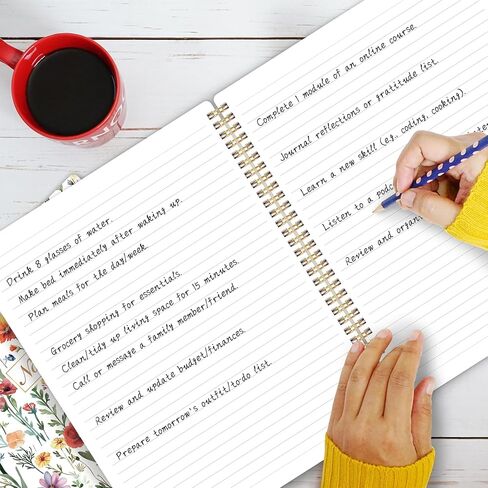 Drink 8 glasses of water.
Make bed immediately after waking up.
Plan meals for the day/week
Grocery shopping for essentials.
Clean/tidy up living space for 15 minutes.
Call or message a family member/friend.
Review and update budget/finances.
Prepare tomorrow's outfit/to-do list.
Complete 1 module of an online course.
Journal reflections or gratitude list.
Learn a new skill (e.g., coding, cooking).
Listen to a
Review and